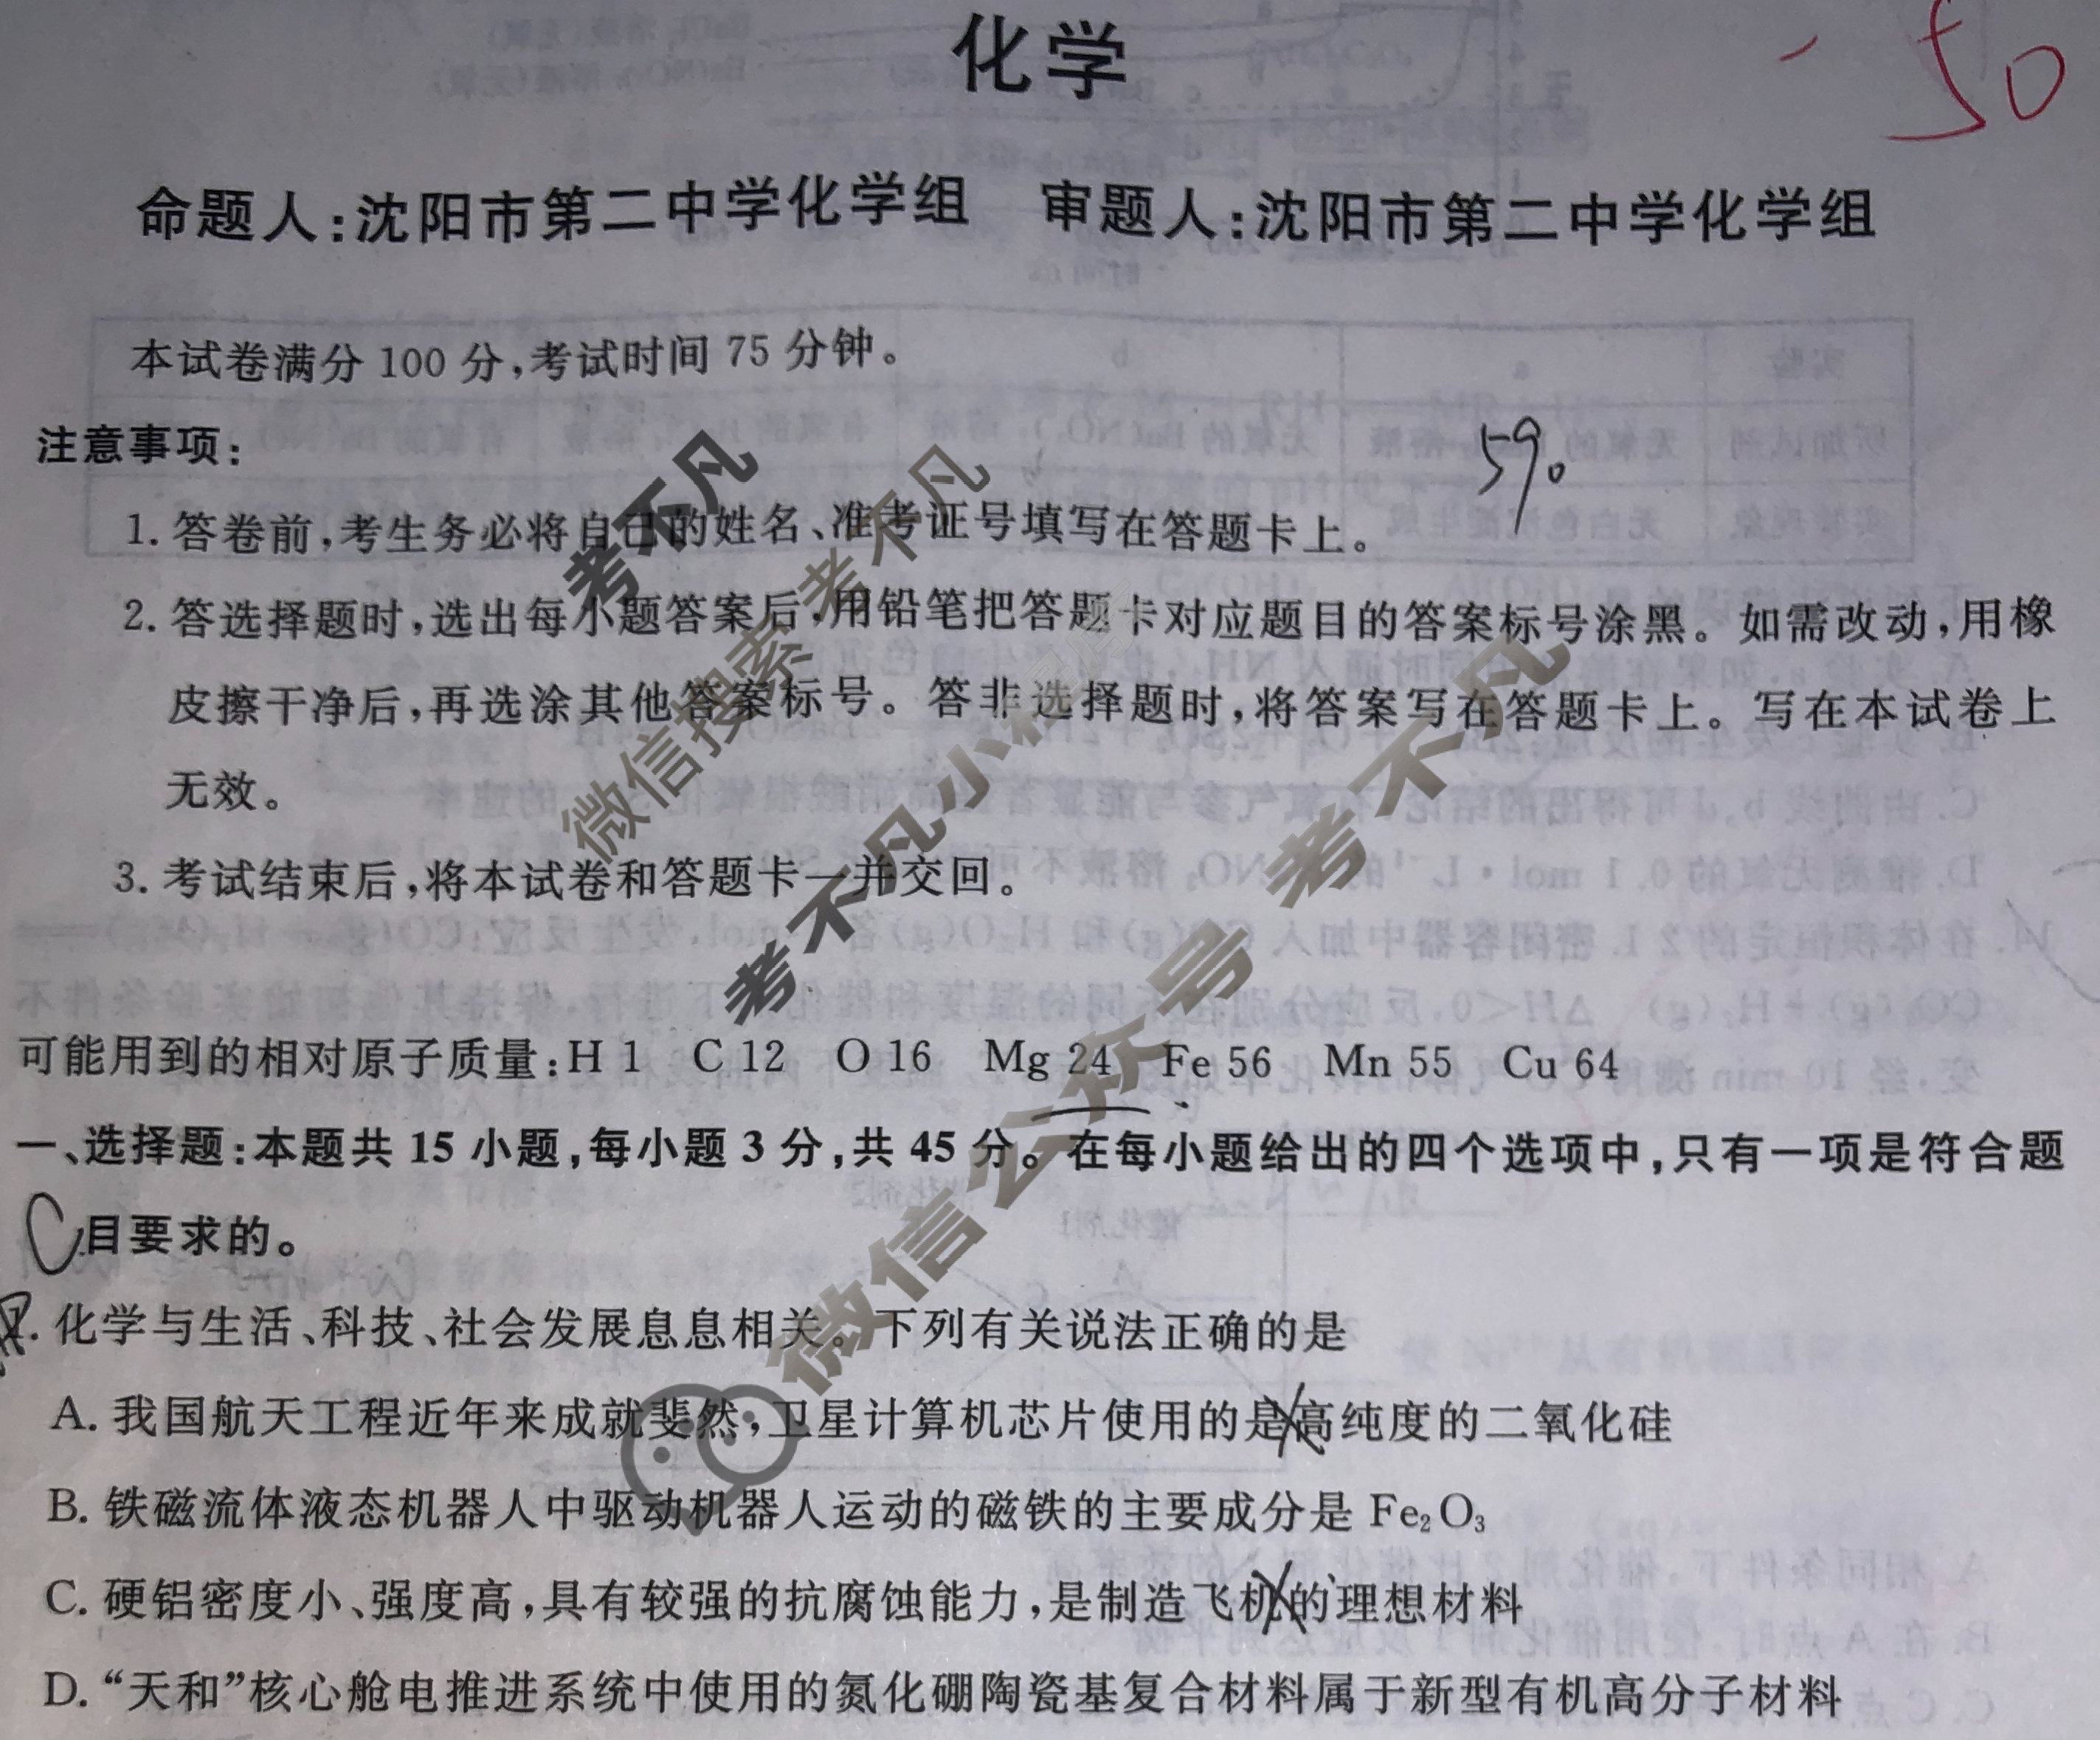 化学
50
命题人:沈阳市第二中学化学组 审题人:沈阳市第二中学化学组
本试卷满分 100 分,考试时间 75 分钟。
注意事项:
1. 答卷前,考生务必将自己的姓名、准考证号填写在答题卡上。
2. 答选择题时,选出每小题答案后,用铅笔把答题卡对应题目的答案标号涂黑。如需改动,用橡
皮擦干净后,再选涂其他答案标号。答非选择题时,将答案写在答题卡上。写在本试卷上
无效。
3. 考试结束后,将本试卷和答题卡一并交回。
可能用到的相对原子质量:H 1 C 12 O 16 Mg 24 Fe 56 Mn 55 Cu 64
一、选择题:本题共 15 小题,每小题 3 分,共 45 分。在每小题给出的四个选项中,只有一项是符合题
目要求的。
C
1. 化学与生活、科技、社会发展息息相关。下列有关说法正确的是
A. 我国航天工程近年来成就斐然,卫星计算机芯片使用的是高纯度的二氧化硅
B. 铁磁流体液态机器人中驱动机器人运动的磁铁的主要成分是 Fe₂O₃
C. 硬铝密度小、强度高,具有较强的抗腐蚀能力,是制造飞机的理想材料
D. “天和”核心舱电推进系统中使用的氮化硼陶瓷基复合材料属于新型有机高分子材料
考不凡
微信搜索 考不凡
考不凡小程序
微信公众号 考不凡